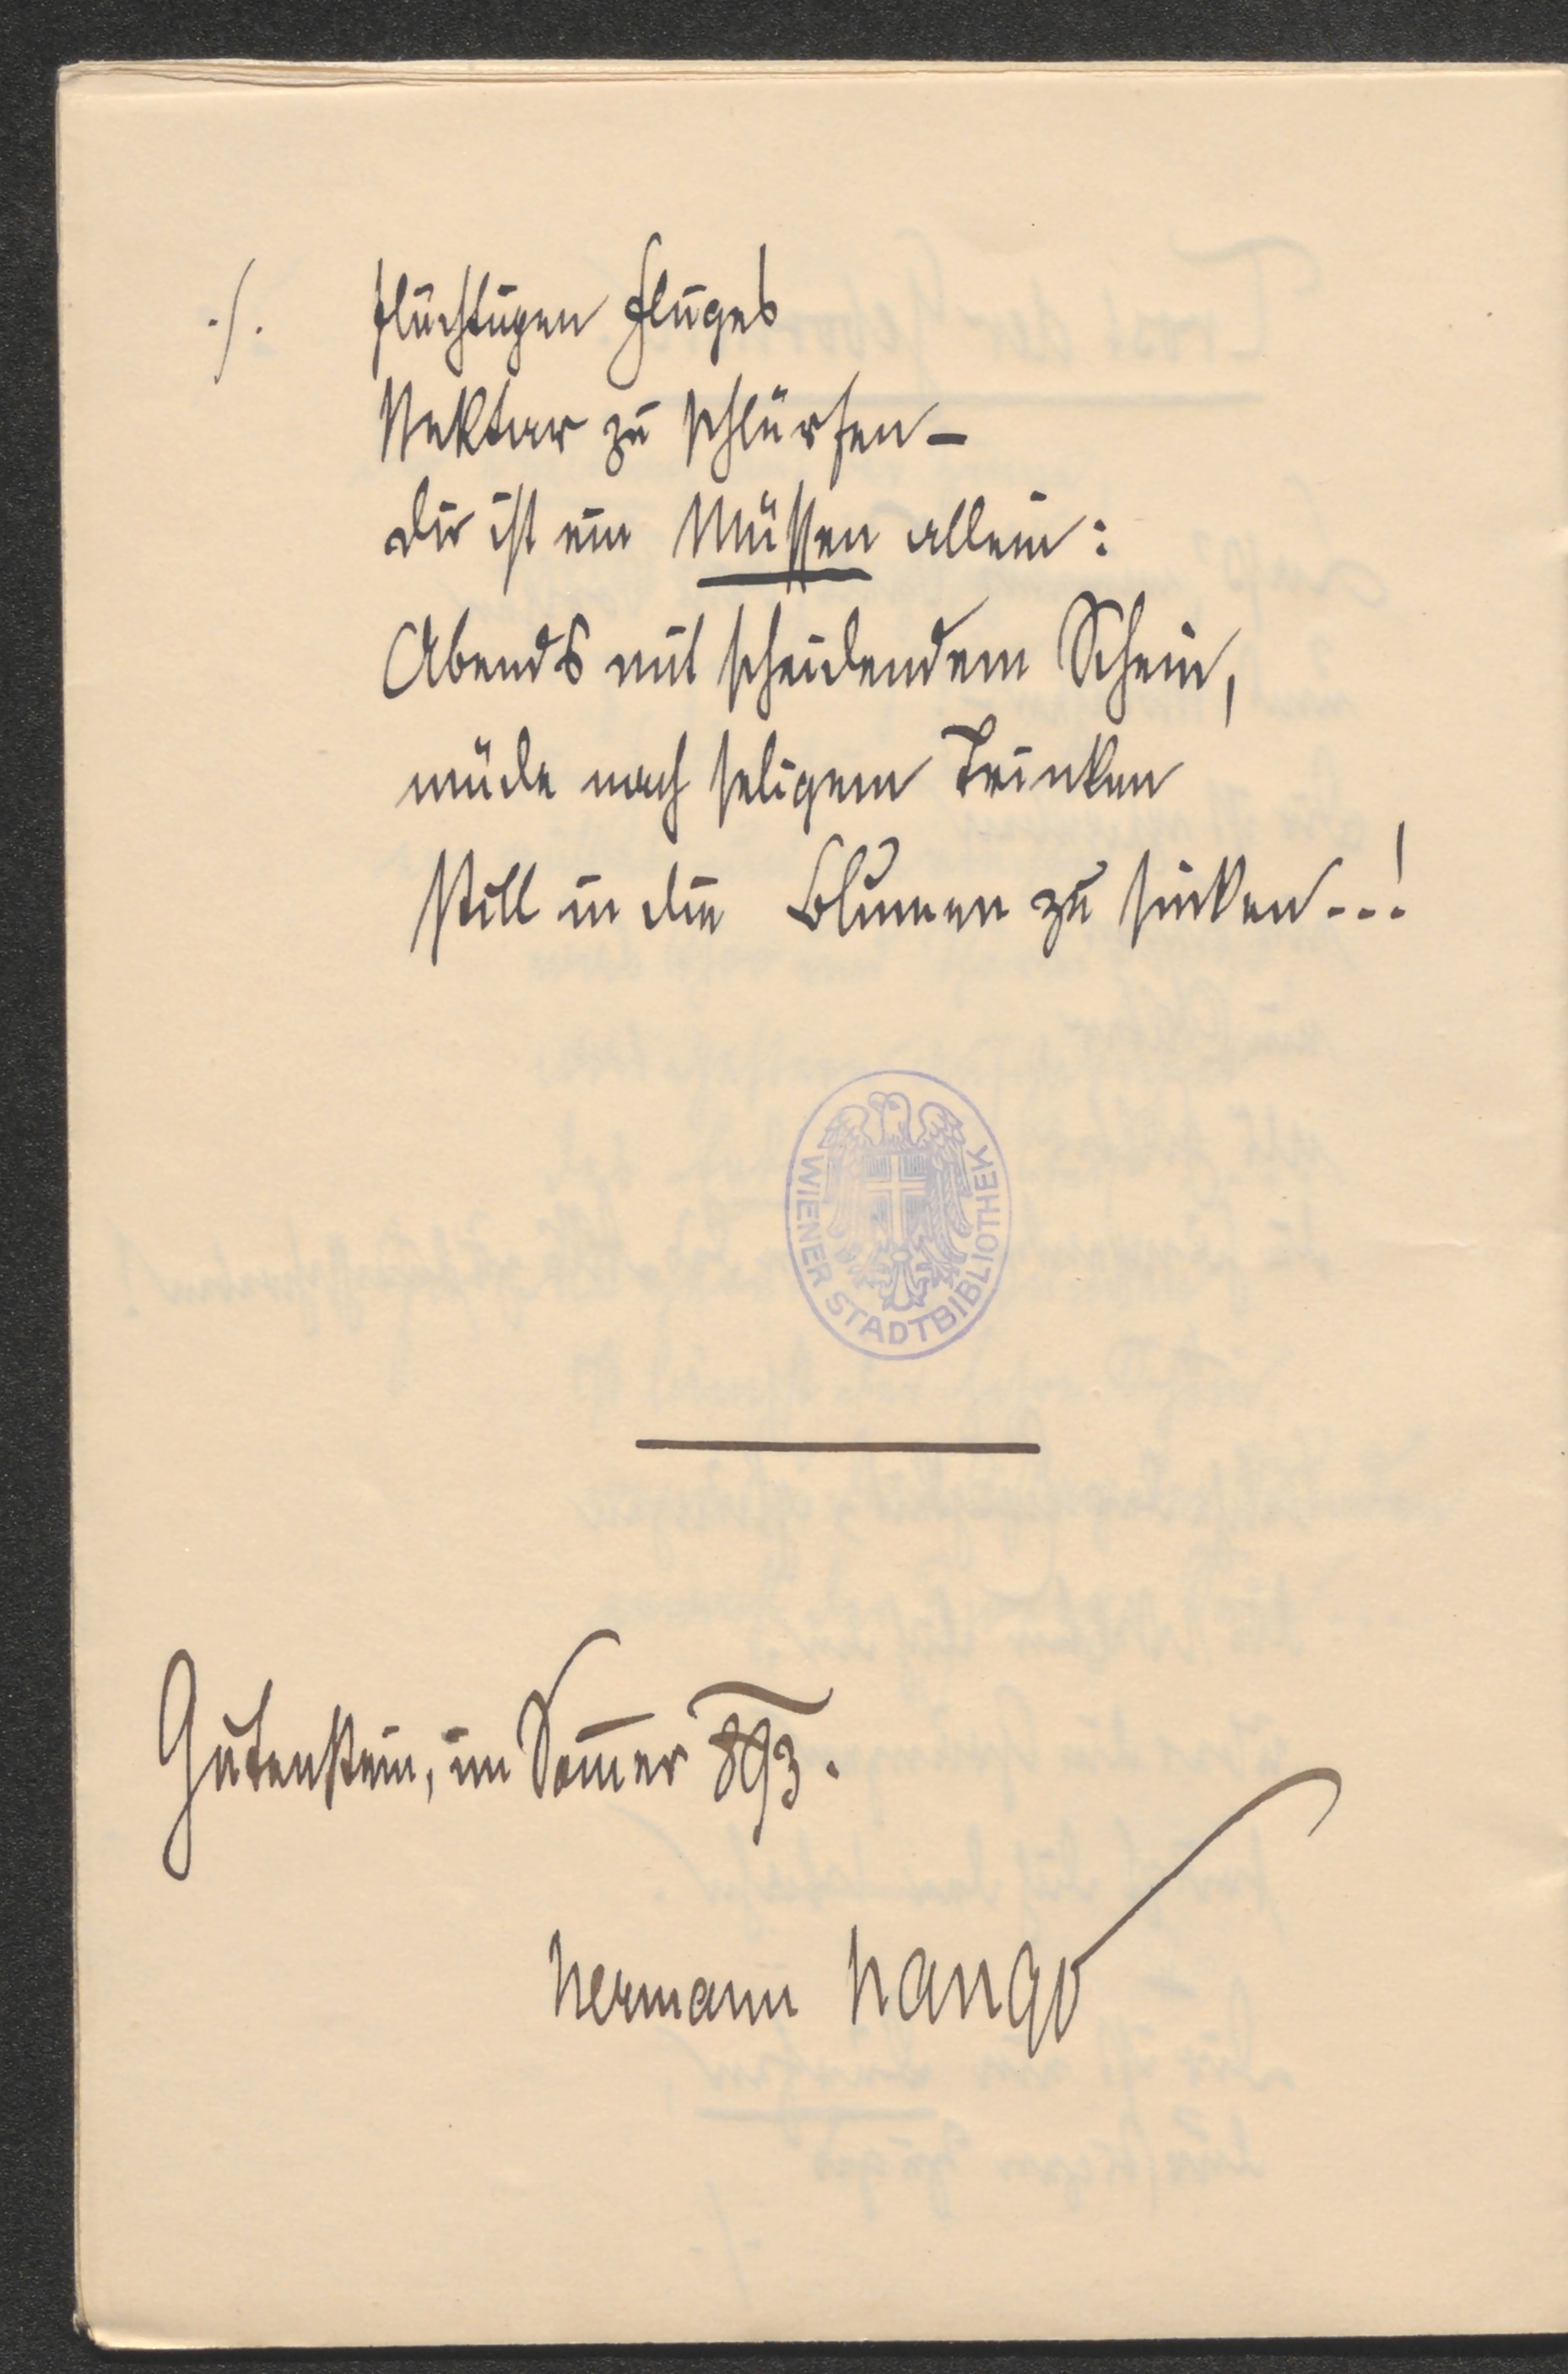 ./. flüchtigen Fluges
Nektar zu schlürfen –
dir ist ein Müssen allein:
Abends mit scheidendem Schein,
müde nach seligem Trinken
still in die Blumen zu sinken...!
WIENER STADTBIBLIOTHEK
Gutenstein, im Som̅er 893.
Hermann Hango